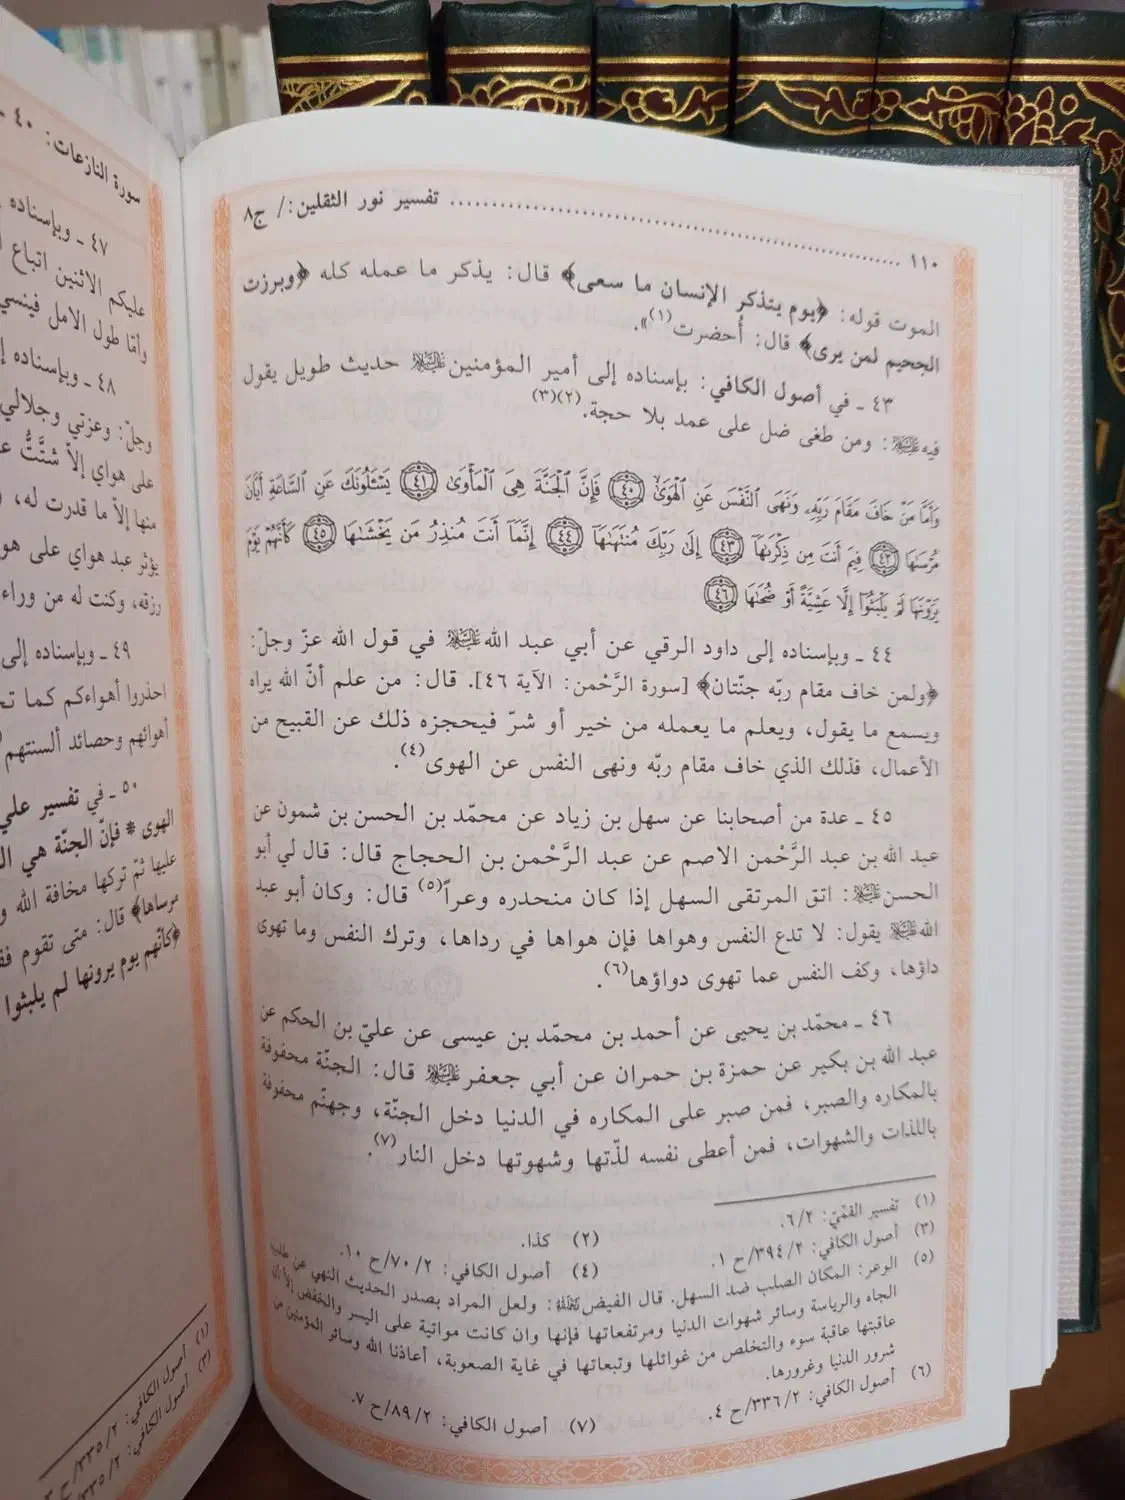 ١١٠ ........................................ تفسير نور الثقلين: / ج٨
الموت قوله: ﴿يوم يتذكر الإنسان ما سعى﴾ قال: يذكر ما عمله كله ﴿وبرزت
الجحيم لمن يرى﴾ قال: أُحضرت(١)».
٤٣ ـ في أصول الكافي: بإسناده إلى أمير المؤمنين عليه السلام حديث طويل يقول
فيه عليه السلام: ومن طغى ضل على عمد بلا حجة.(٢)(٣)
وَأَمَّا مَنْ خَافَ مَقَامَ رَبِّهِۦ وَنَهَى ٱلنَّفْسَ عَنِ ٱلْهَوَىٰ ٤٠ فَإِنَّ ٱلْجَنَّةَ هِىَ ٱلْمَأْوَىٰ ٤١ يَسْـَٔلُونَكَ عَنِ ٱلسَّاعَةِ أَيَّانَ
مُرْسَىٰهَا ٤٢ فِيمَ أَنتَ مِن ذِكْرَىٰهَآ ٤٣ إِلَىٰ رَبِّكَ مُنتَهَىٰهَآ ٤٤ إِنَّمَآ أَنتَ مُنذِرُ مَن يَخْشَىٰهَا ٤٥ كَأَنَّهُمْ يَوْمَ
يَرَوْنَهَا لَمْ يَلْبَثُوٓا۟ إِلَّا عَشِيَّةً أَوْ ضُحَىٰهَا ٤٦
٤٤ ـ وبإسناده إلى داود الرقي عن أبي عبد الله عليه السلام في قول الله عزّ وجلّ:
﴿ولمن خاف مقام ربّه جنّتان﴾ [سورة الرَّحْمن: الآية ٤٦]. قال: من علم أنّ الله يراه
ويسمع ما يقول، ويعلم ما يعمله من خير أو شرّ فيحجزه ذلك عن القبيح من
الأعمال، فذلك الذي خاف مقام ربّه ونهى النفس عن الهوى(٤).
٤٥ ـ عدة من أصحابنا عن سهل بن زياد عن محمّد بن الحسن بن شمون عن
عبد الله بن عبد الرَّحْمن الاصم عن عبد الرَّحْمن بن الحجاج قال: قال لي أبو
الحسن عليه السلام: اتق المرتقى السهل إذا كان منحدره وعراً(٥) قال: وكان أبو عبد
الله عليه السلام يقول: لا تدع النفس وهواها فإن هواها في رداها، وترك النفس وما تهوى
داؤها، وكف النفس عما تهوى دواؤها(٦).
٤٦ ـ محمّد بن يحيى عن أحمد بن محمّد بن عيسى عن عليّ بن الحكم عن
عبد الله بن بكير عن حمزة بن حمران عن أبي جعفر عليه السلام قال: الجنّة محفوفة
بالمكاره والصبر، فمن صبر على المكاره في الدنيا دخل الجنّة، وجهنّم محفوفة
باللذات والشهوات، فمن أعطى نفسه لذّتها وشهوتها دخل النار(٧).
(١) تفسير القمّيّ: ٦/٢.
(٢) كذا.
(٣) أصول الكافي: ٣٩٤/٢/ح ١.
(٤) أصول الكافي: ٧٠/٢/ح ١٠.
(٥) الوعر: المكان الصلب ضد السهل. قال الفيض رحمه الله: ولعل المراد بصدر الحديث النهي عن طلب
الجاه والرياسة وسائر شهوات الدنيا ومرتفعاتها فإنها وان كانت مواتية على اليسر والخفض إلاّ ان
عاقبتها عاقبة سوء والتخلص من غوائلها وتبعاتها في غاية الصعوبة، أعاذنا الله وسائر المؤمنين من
شرور الدنيا وغرورها.
(٦) أصول الكافي: ٣٣٦/٢/ح ٤.
(٧) أصول الكافي: ٨٩/٢/ح ٧.
سورة النازعات: ٤٠ -
٤٧ ـ وبإسناده
عليكم الاثنين اتباع
وأمّا طول الامل فينسي
٤٨ ـ وبإسناده
وجلّ: وعزتي وجلالي
على هواي إلاّ شتَّتُّ
منها إلاّ ما قدرت له،
يؤثر عبد هواي على
رزقه، وكنت له من وراء
٤٩ ـ وبإسناده إلى
احذروا أهواءكم كما
أهوائهم وحصائد ألسنتهم
٥٠ ـ في تفسير علي
الهوى * فإنّ الجنّة هي
عليها ثمّ تركها مخافة الله
مرساها﴾ قال: متى تقوم
﴿كأنّهم يوم يرونها لم يلبثوا
(١) أصول الكافي: ٣٣٥/٢/ح
(٣) أصول الكافي: ٣٣٥/٢